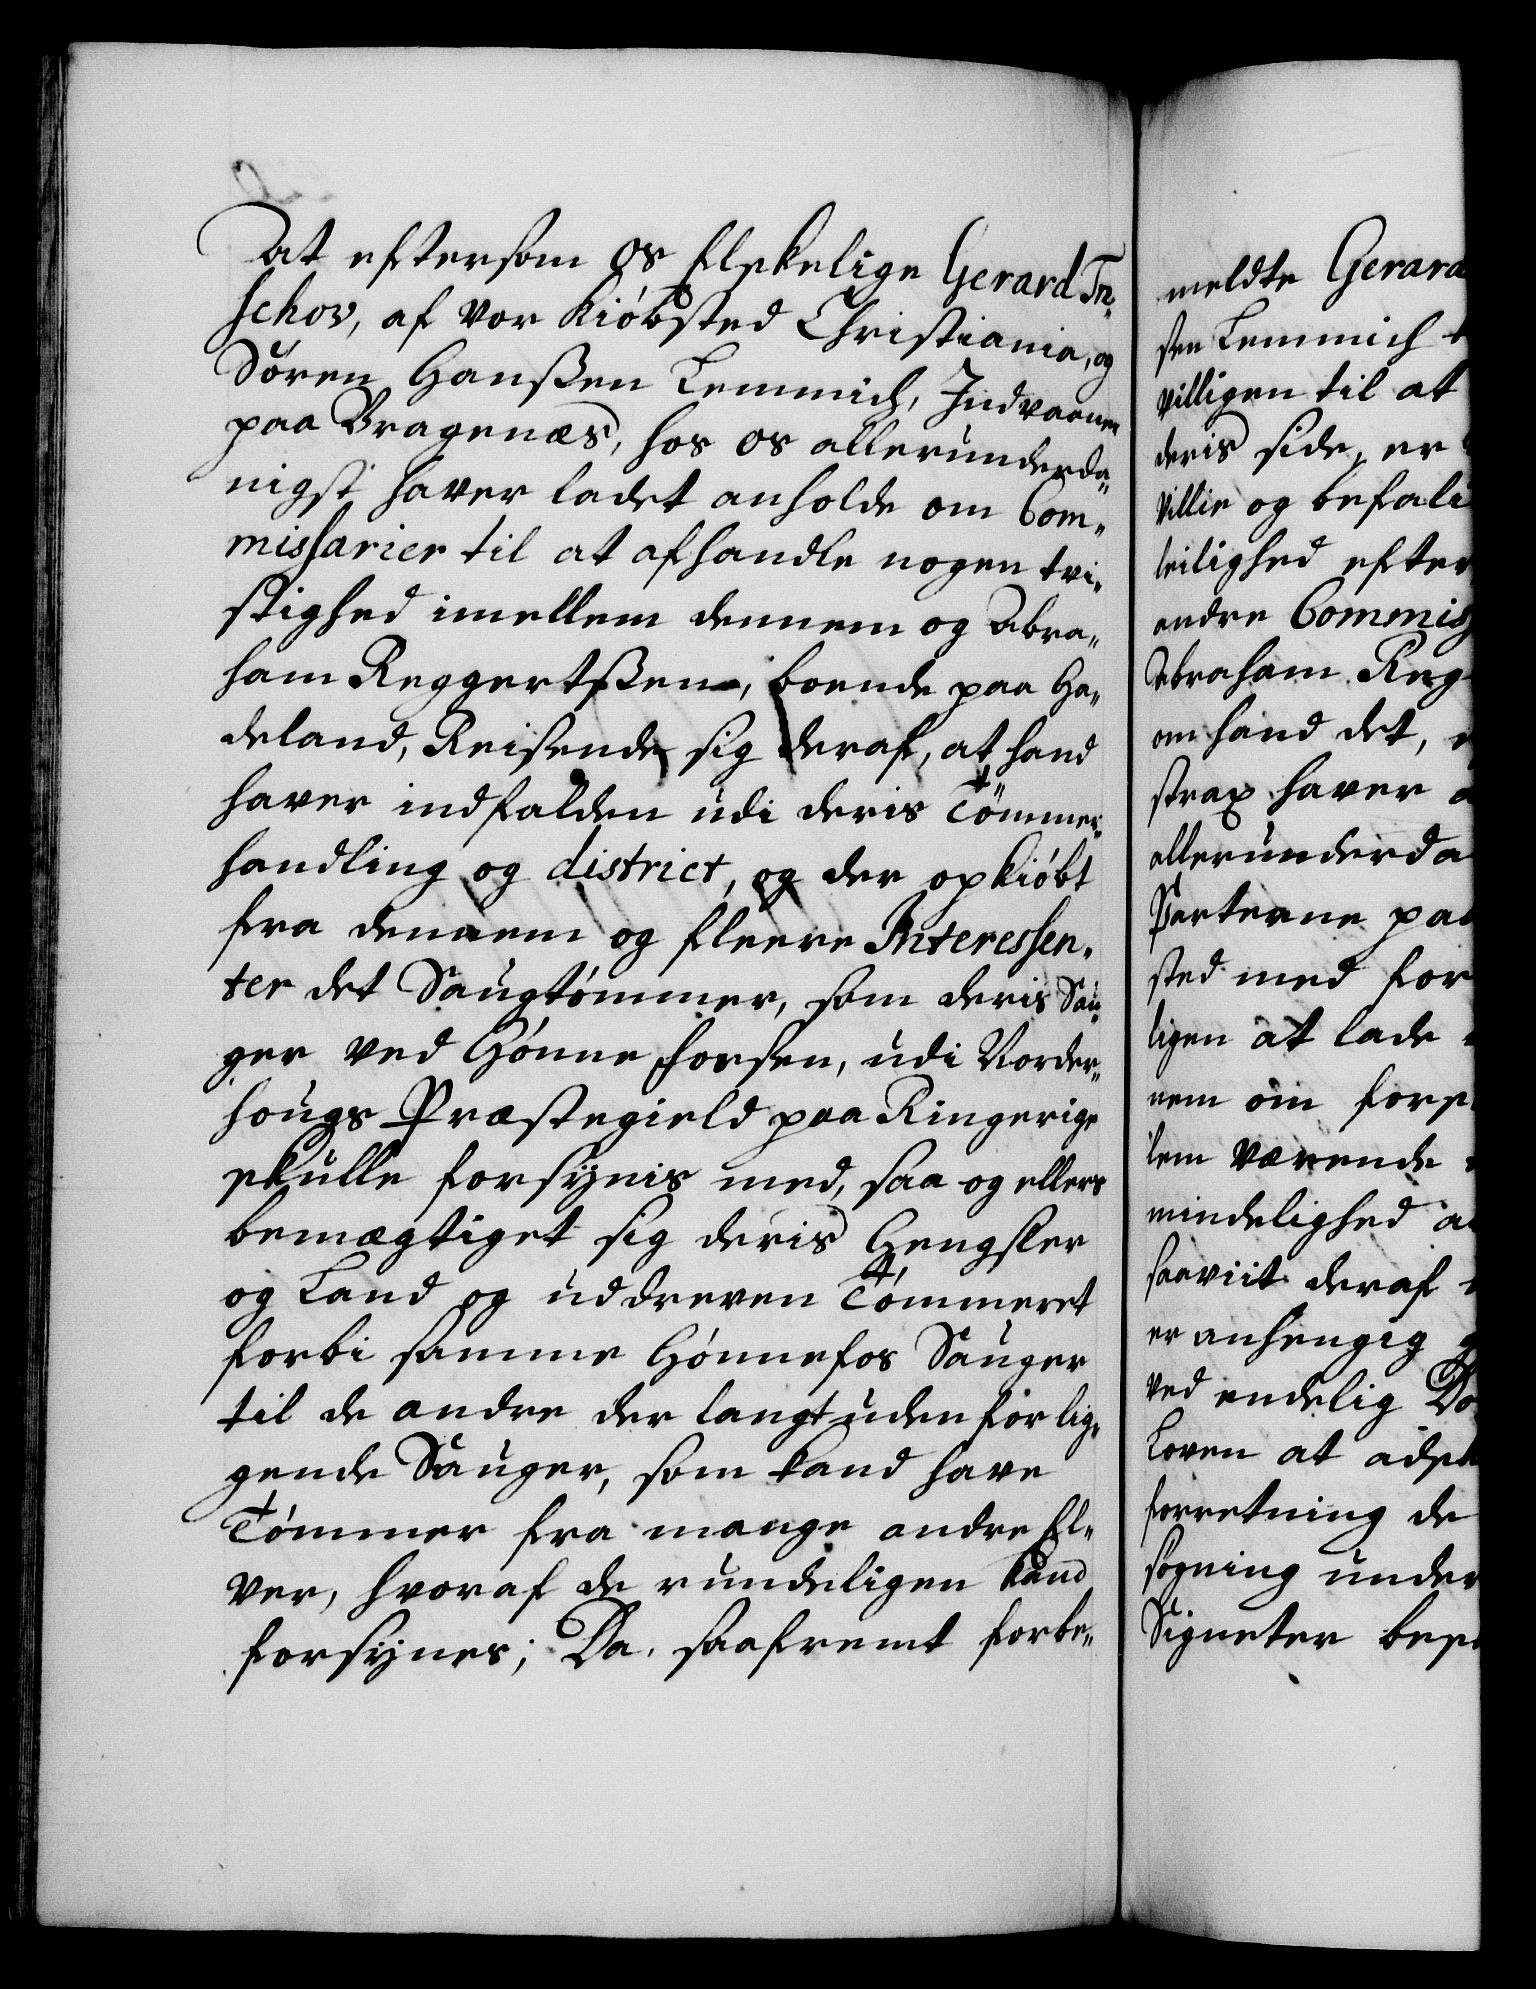 At eftersom os Elskelige Gerard Tre„
schov, af vor kiöbsted Christiania, og
Sören Hanßen Lemmich, Indvaaner
paa Bragenæs, hos os allerunderda„
nigst haver ladet anholde om Com„
missarier til at afhandle nogen tvi„
stighed imellem dennem og Abra„
ham Reggertßen, boende paa Ha„
deland, Reisende sig deraf, at hand
haver indfalden udi deris Tömmer„
handling og district, og der opkiöbt
fra dennem og fleere Interessen„
ter det Saugtömmer, som deris Sau„
ger ved Hönne Forsen, udi Norder„
hougs Præstegield paa Ringerige
skulle forsÿnis med, saa og ellers
bemægtiget sig deris Hengsler
og Land og uddreven Tömmeret
forbi samme Hönnefos Sauger
til de andre der langt uden for lig„
gende Sauger, som kand have
Tömmer fra mange andre El„
ver, hvoraf de rundeligen kand
forsÿnes; Da, saafremt forbe„
meldte Gerard
sen Lemmich
villigen til at
deris side, er
villie og befali
leilighed efter
andre Commiss
Abraham Reg
om hand det,
strax haver
allerunderda
Parterne paa
sted med for
ligen at lade
nem om forsk
lem værende
mindelighed
saaviit deraf
er anhengig
ved endelig Do
Loven at adsk
forretning de
sögning under
Signeter besk